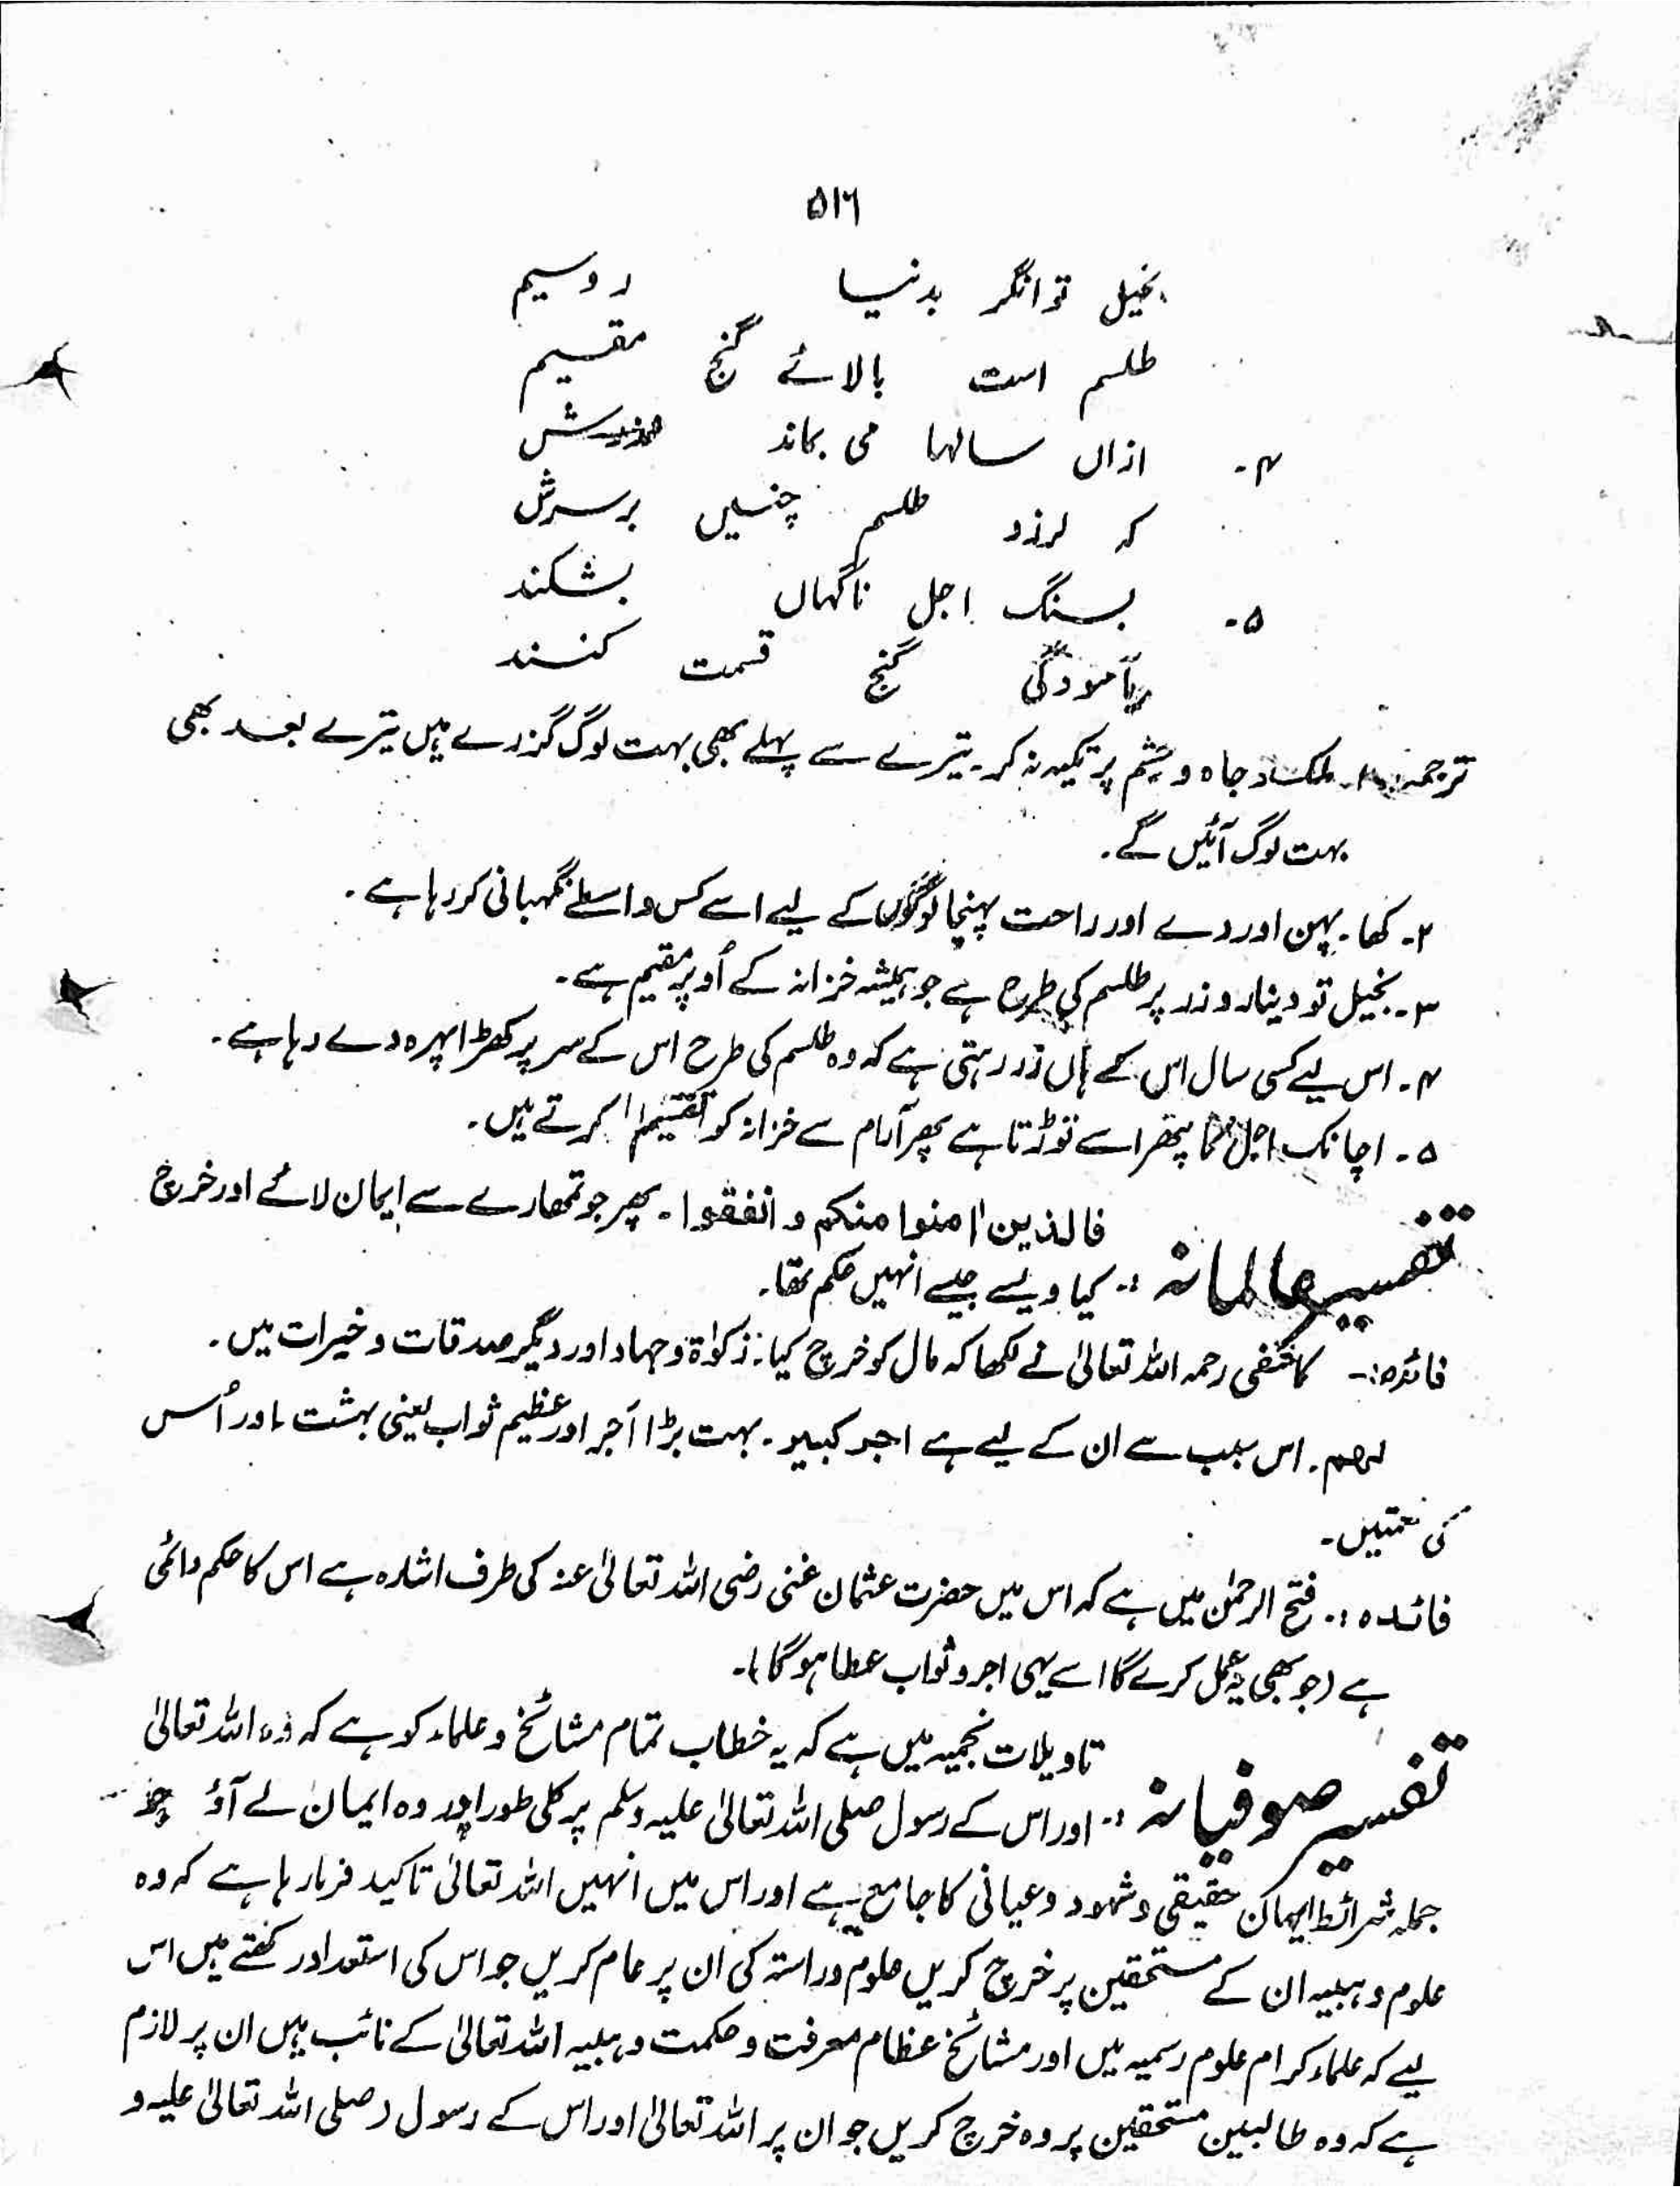 ۵۱۶
بخیل توانگر بدنیا روسیم
طلسم است بالائے گنج مقیم
۴۔ ازاں سالہا می بماند
کہ لرزد طلسم چنیں برسرش
۵۔ بسنگ اجل ناگہاں بشکند
گنج قسمت کنند
ترجمہ ۱۔ ملک و جاہ و حشم پر تکیہ نہ کر۔ تیرے سے پہلے بھی بہت لوگ گزرے ہیں تیرے بعد بھی
بہت لوگ آئیں گے۔
۲۔ کھا۔ پہن اور دے اور راحت پہنچا لوگوں کے لیے اسے کس واسطے نگہبانی کر رہا ہے۔
۳۔ بخیل تو دینار و زر پر طلسم کی طرح ہے جو ہمیشہ خزانہ کے اُوپر مقیم ہے۔
۴۔ اس لیے کسی سال اس کے ہاں زر رہتی ہے کہ وہ طلسم کی طرح اس کے سر پر کھڑا پہرہ دے رہا ہے۔
۵۔ اچانک اجل کا پتھر اسے توڑتا ہے پھر آرام سے خزانہ کو تقسیم کرتے ہیں۔
فالذین اٰمنوا منکم و انفقوا۔ پھر جو تمھارے سے ایمان لائے اور خرچ
تفسیر عالمانہ :۔ کیا ویسے جیسے انہیں حکم تھا۔
فائدہ:۔ کاشفی رحمہ اللہ تعالیٰ نے لکھا کہ مال کو خرچ کیا: زکوٰۃ و جہاد اور دیگر صدقات و خیرات میں۔
لہم۔ اس سبب سے ان کے لیے ہے اجر کبیر۔ بہت بڑا اَجر اور عظیم ثواب یعنی بہشت اور اُس
کی نعمتیں۔
فائدہ :۔ فتح الرحمٰن میں ہے کہ اس میں حضرت عثمان غنی رضی اللہ تعالیٰ عنہ کی طرف اشارہ ہے اس کا حکم دائمی
ہے (جو بھی یہ عمل کرے گا اسے یہی اجر و ثواب عطا ہوگا)۔
تاویلات نجمیہ میں ہے کہ یہ خطاب تمام مشائخ و علماء کو ہے کہ وہ اللہ تعالیٰ
تفسیر صوفیانہ :۔ اور اس کے رسول صلی اللہ تعالیٰ علیہ وسلم پر کلی طور اور وہ ایمان لے آؤ جو
جملہ شرائط ایمان حقیقی و شہود و عیانی کا جامع ہے اور اس میں انہیں اللہ تعالیٰ تاکید فرما رہا ہے کہ وہ
علوم وہبیہ ان کے مستحقین پر خرچ کریں علوم وراستہ کی ان پر عام کریں جو اس کی استعداد رکھتے ہیں اس
لیے کہ علماء کرام علوم رسمیہ میں اور مشائخ عظام معرفت و حکمت وہبیہ اللہ تعالیٰ کے نائب ہیں ان پر لازم
ہے کہ وہ طالبین مستحقین پر وہ خرچ کریں جو ان پر اللہ تعالیٰ اور اس کے رسول (صلی اللہ تعالیٰ علیہ و